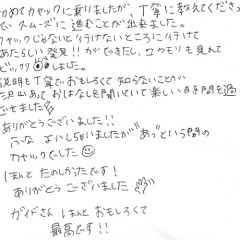 初めてカヤックに乗りましたが、丁寧に教えてくださっ
てスムーズに進むことが出来ました。
カヤックじゃないと行けないところに行けて
あたらしい発見!!ができたし、コウモリも見れて
ビックリしました。
説明も丁寧でおもしろくて知らないことが
沢山あっておはなしを聞いていて楽しい時間を過
せました
ありがとうございました!!
ふな よいしちゃいましたが"あっ"という間の
カヤックでした
ほんと たのしかったです!
ありがとう ございました
ガイドさん ほんと おもしろくて
最高です!!